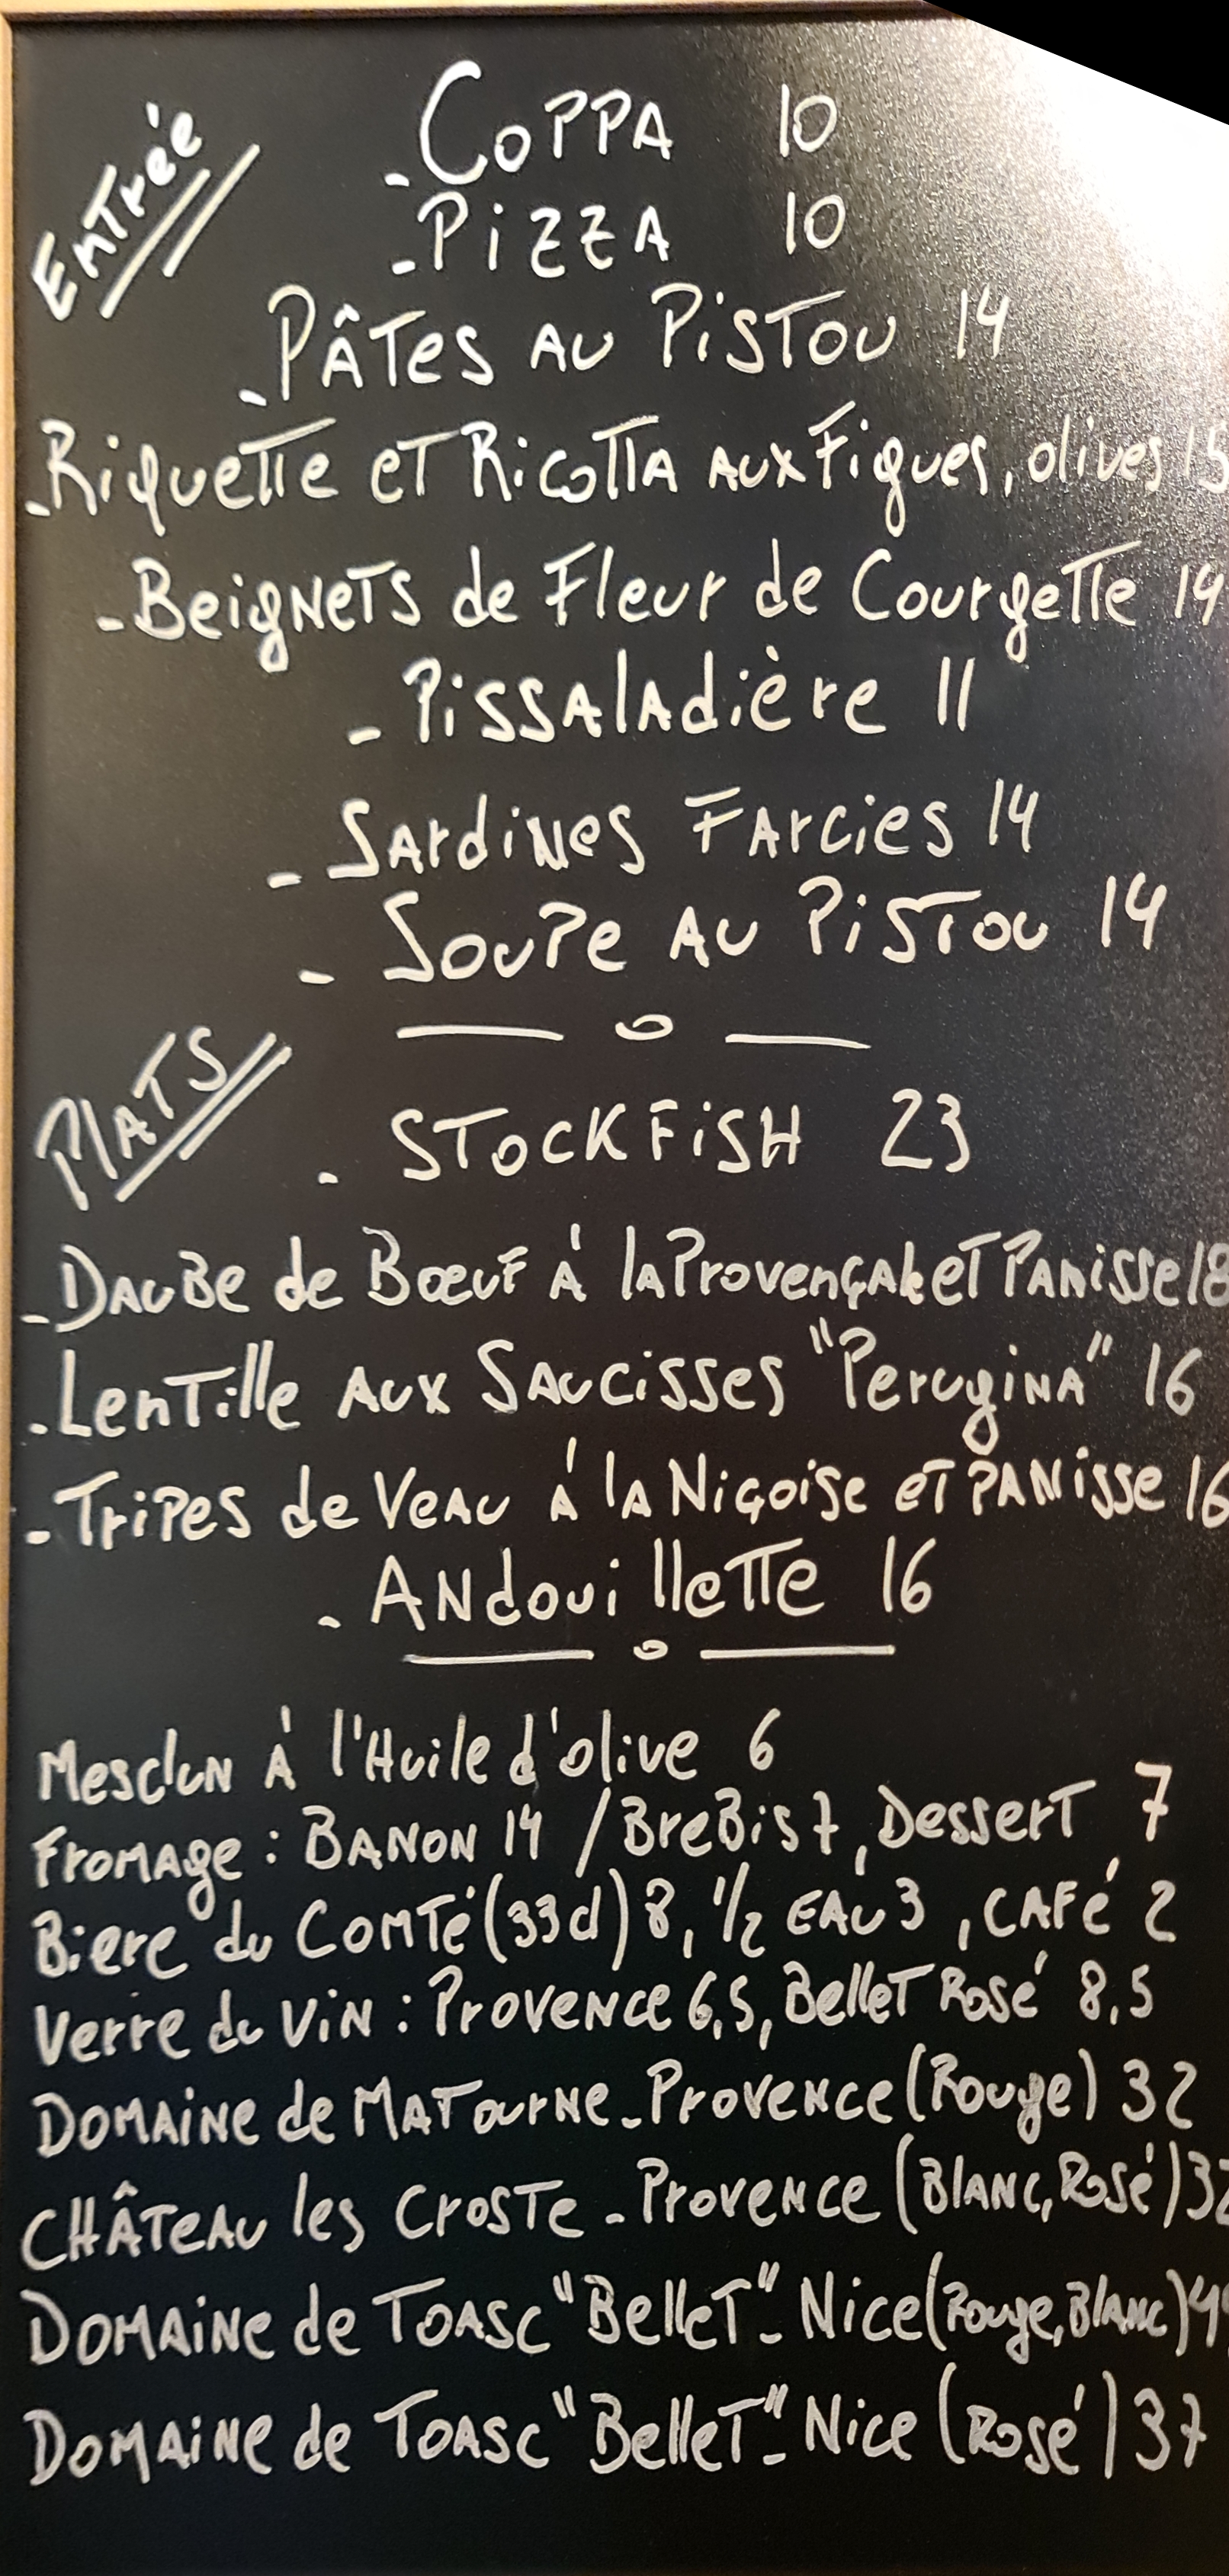 Entrée
- Coppa 10
- Pizza 10
- Pâtes au Pistou 14
- Riquette et Ricotta aux Figues, olives 15
- Beignets de Fleur de Courgette 14
- Pissaladière 11
- Sardines Farcies 14
- Soupe au Pistou 14
Plats
- STOCKFISH 23
- Daube de Bœuf à la Provençale et Panisse 18
- Lentille aux Saucisses "Perugina" 16
- Tripes de Veau à la Niçoise et Panisse 16
- Andouillette 16
Mesclun à l'Huile d'olive 6
Fromage : Banon 14 / Brebis 7, Dessert 7
Biere du Comté (33d) 8, 1/2 Eau 3, Café 2
Verre du Vin : Provence 6,5, Bellet Rosé 8,5
Domaine de Matourne - Provence (Rouge) 32
Château les Croste - Provence (Blanc, Rosé) 32
Domaine de Toasc "Bellet" - Nice (Rouge, Blanc)
Domaine de Toasc "Bellet" - Nice (Rosé) 37